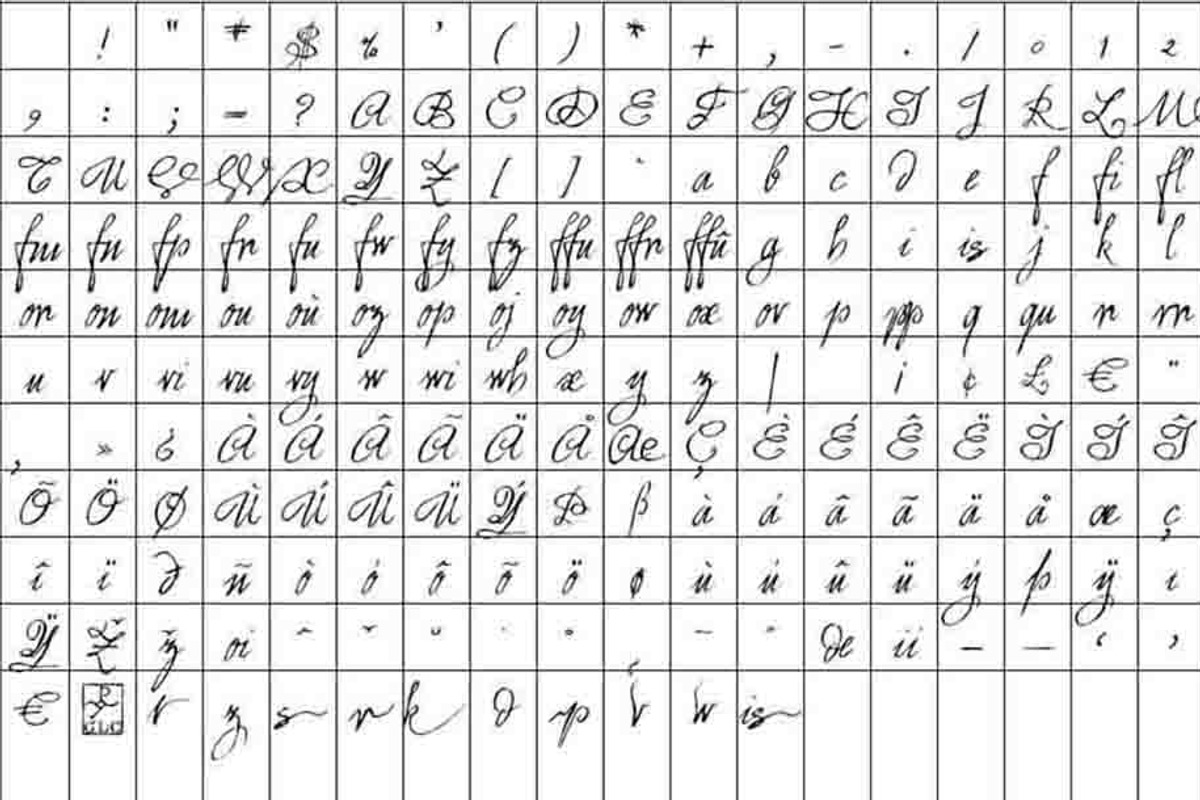 ! " # $ % ' ( ) * + , - . / 0 1 2
9 : ; = ? A B C D E F G H I J K L M
T U V W X Y Z [ ] ` a b c d e f fi fl
fm fn fp fr fu fw fy fz ffu ffr ffû g h i is j k l
or on om ou où oz op oj oy ow ox ov p pp q qu r rr
u v vi vu vy w wi wh x y z | ¡ ¢ £ € "
, » ¿ À Á Â Ã Ä Å Ae Ç È É Ê Ë Ì Í Î
Õ Ö Ø Ù Ú Û Ü Ý Þ ß à á â ã ä å æ ç
î ï ð ñ ò ó ô õ ö ø ù ú û ü ý þ ÿ ı
Ÿ Ž ž oi ˆ ˇ ˘ ˙ ˚ ˛ ˜ ˝ de ii – — ‘ ’
€ r z s r k d p v w is